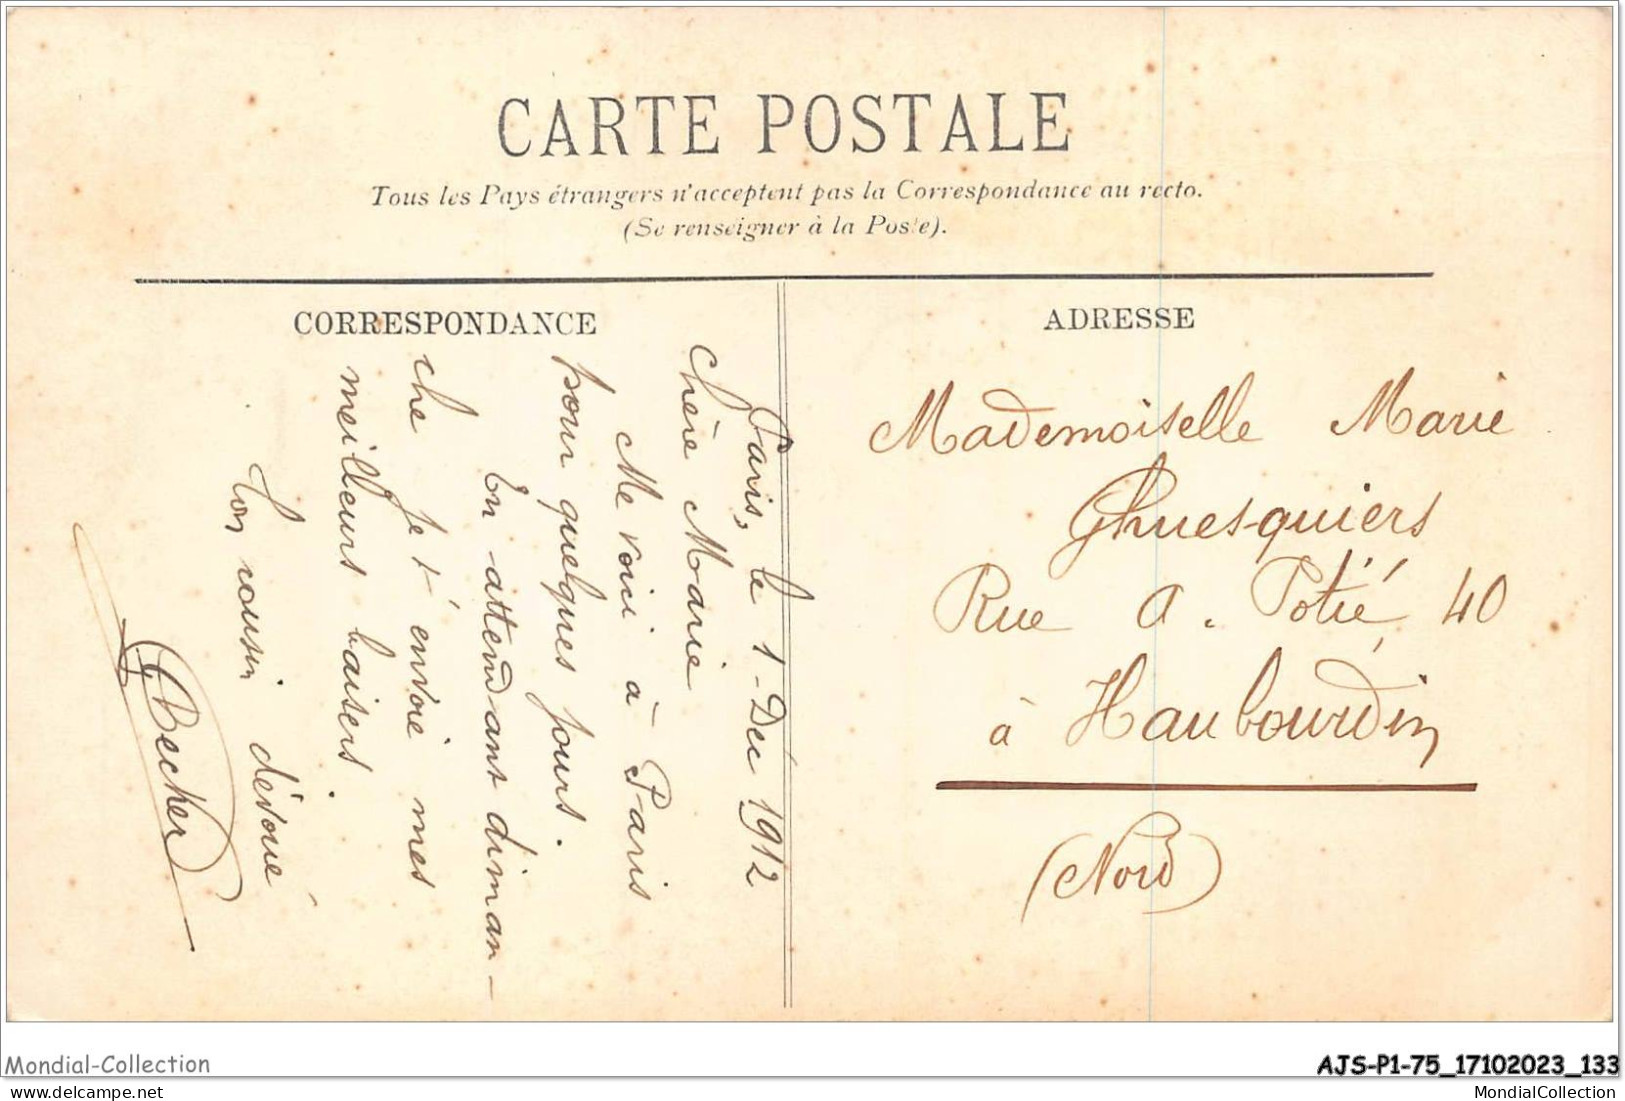 CARTE POSTALE
Tous les Pays étrangers n'acceptent pas la Correspondance au recto.
(Se renseigner à la Poste).
CORRESPONDANCE
Paris, le 1 - Déc 1912
Chère Marie
Me voici à Paris
pour quelques jours.
En attendant diman-
che je t'envoie mes
meilleurs baisers.
Ton cousin dévoué
Becker
ADRESSE
Mademoiselle Marie
Ghuesquiers
Rue A. Potié, 40
à Haubourdin
(Nord)
Mondial-Collection
AJS-P1-75_17102023_133
delcampe.net
MondialCollection